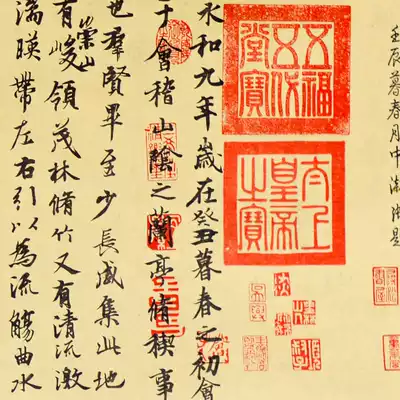 壬辰暮春月中
五福五代堂寶
太上皇帝之寶
永和九年歲在癸丑暮春之初會
于會稽山陰之蘭亭脩禊事
也羣賢畢至少長咸集此地
有崇山峻領茂林脩竹又有清流激
湍暎帶左右引以為流觴曲水